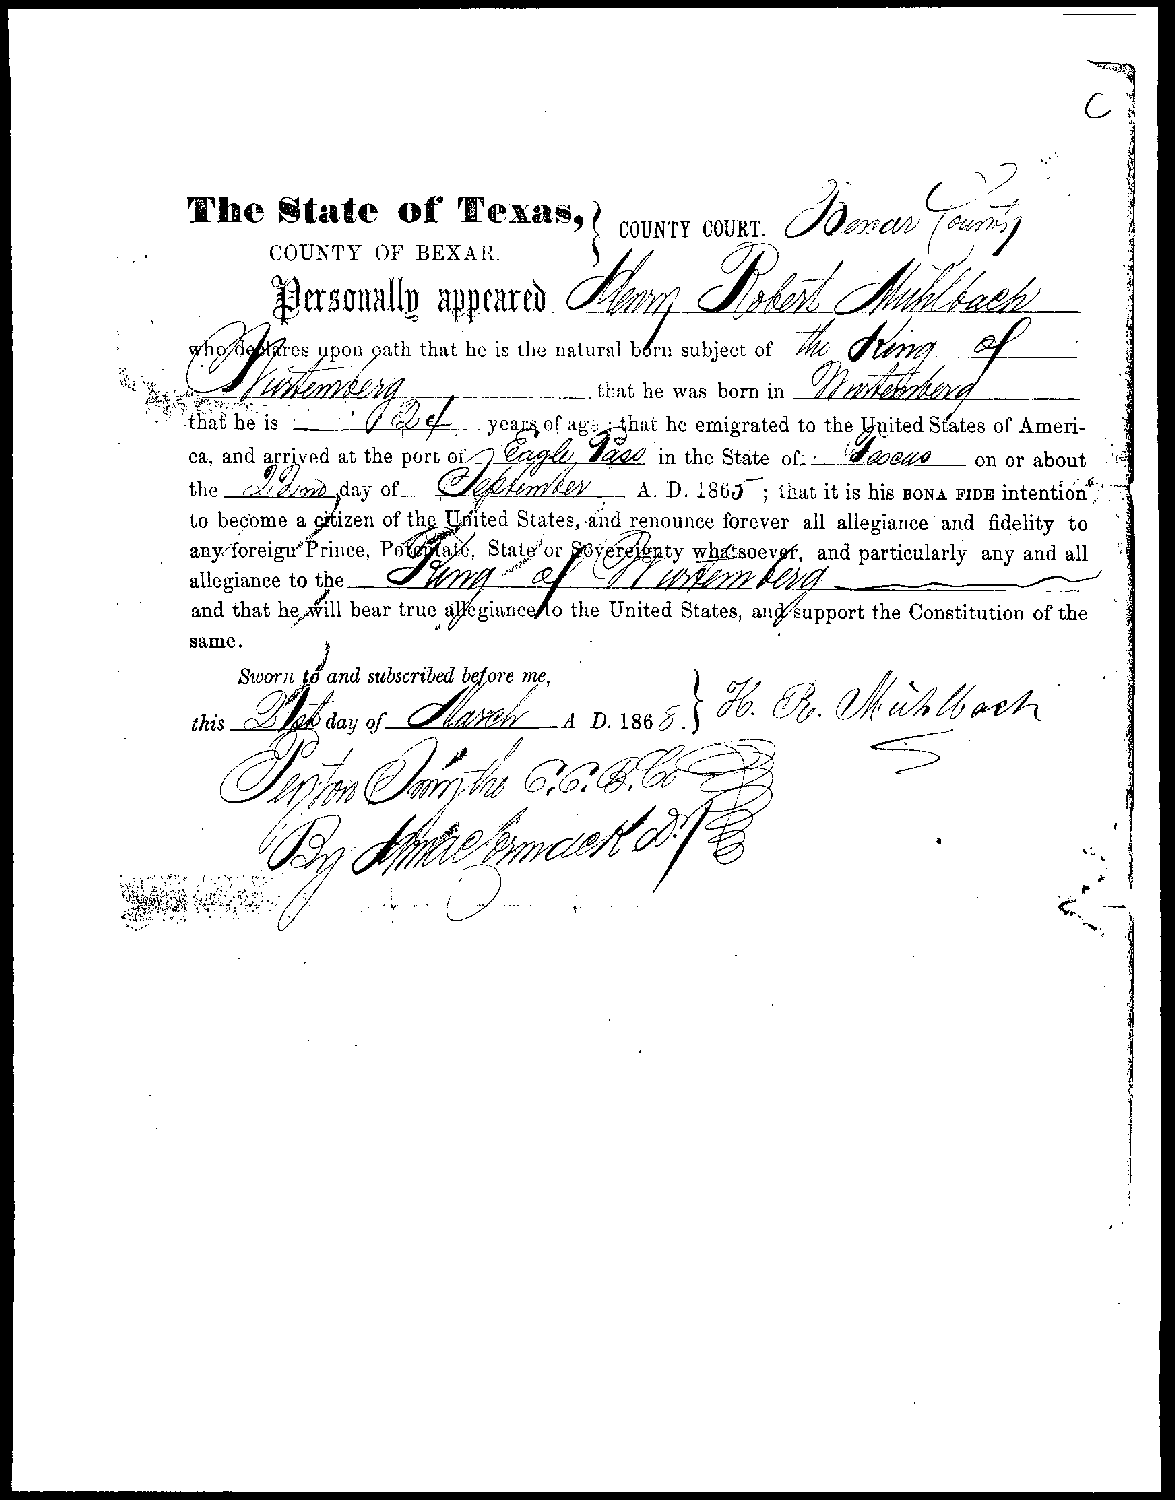 C
The State of Texas, } COUNTY COURT. Bexar County
COUNTY OF BEXAR.
Personally appeared Henry Robert Mühlbach
who declares upon oath that he is the natural born subject of the King of
Wurtemberg that he was born in Wurtemberg
that he is 24 years of age; that he emigrated to the United States of Ameri-
ca, and arrived at the port of Eagle Pass in the State of Texas on or about
the 22nd day of September A. D. 1865; that it is his BONA FIDE intention
to become a citizen of the United States, and renounce forever all allegiance and fidelity to
any foreign Prince, Potentate, State or Sovereignty whatsoever, and particularly any and all
allegiance to the King of Wurtemberg
and that he will bear true allegiance to the United States, and support the Constitution of the
same.
Sworn to and subscribed before me,
this 21st day of March A D. 1868. } H. R. Mühlbach
Peyton Smythe C.C.B.Co
By